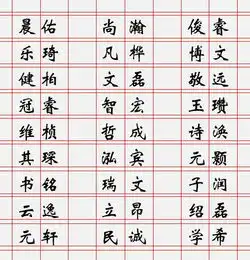 晨佑 尚瀚 俊睿
乐琦 凡桦 博文
健柏 文磊 敬远
冠睿 智宏 玉瓒
维桢 哲成 诗涣
其琛 泓宾 元颢
书铭 瑞文 子润
云逸 立昂 绍磊
元轩 民诚 学希